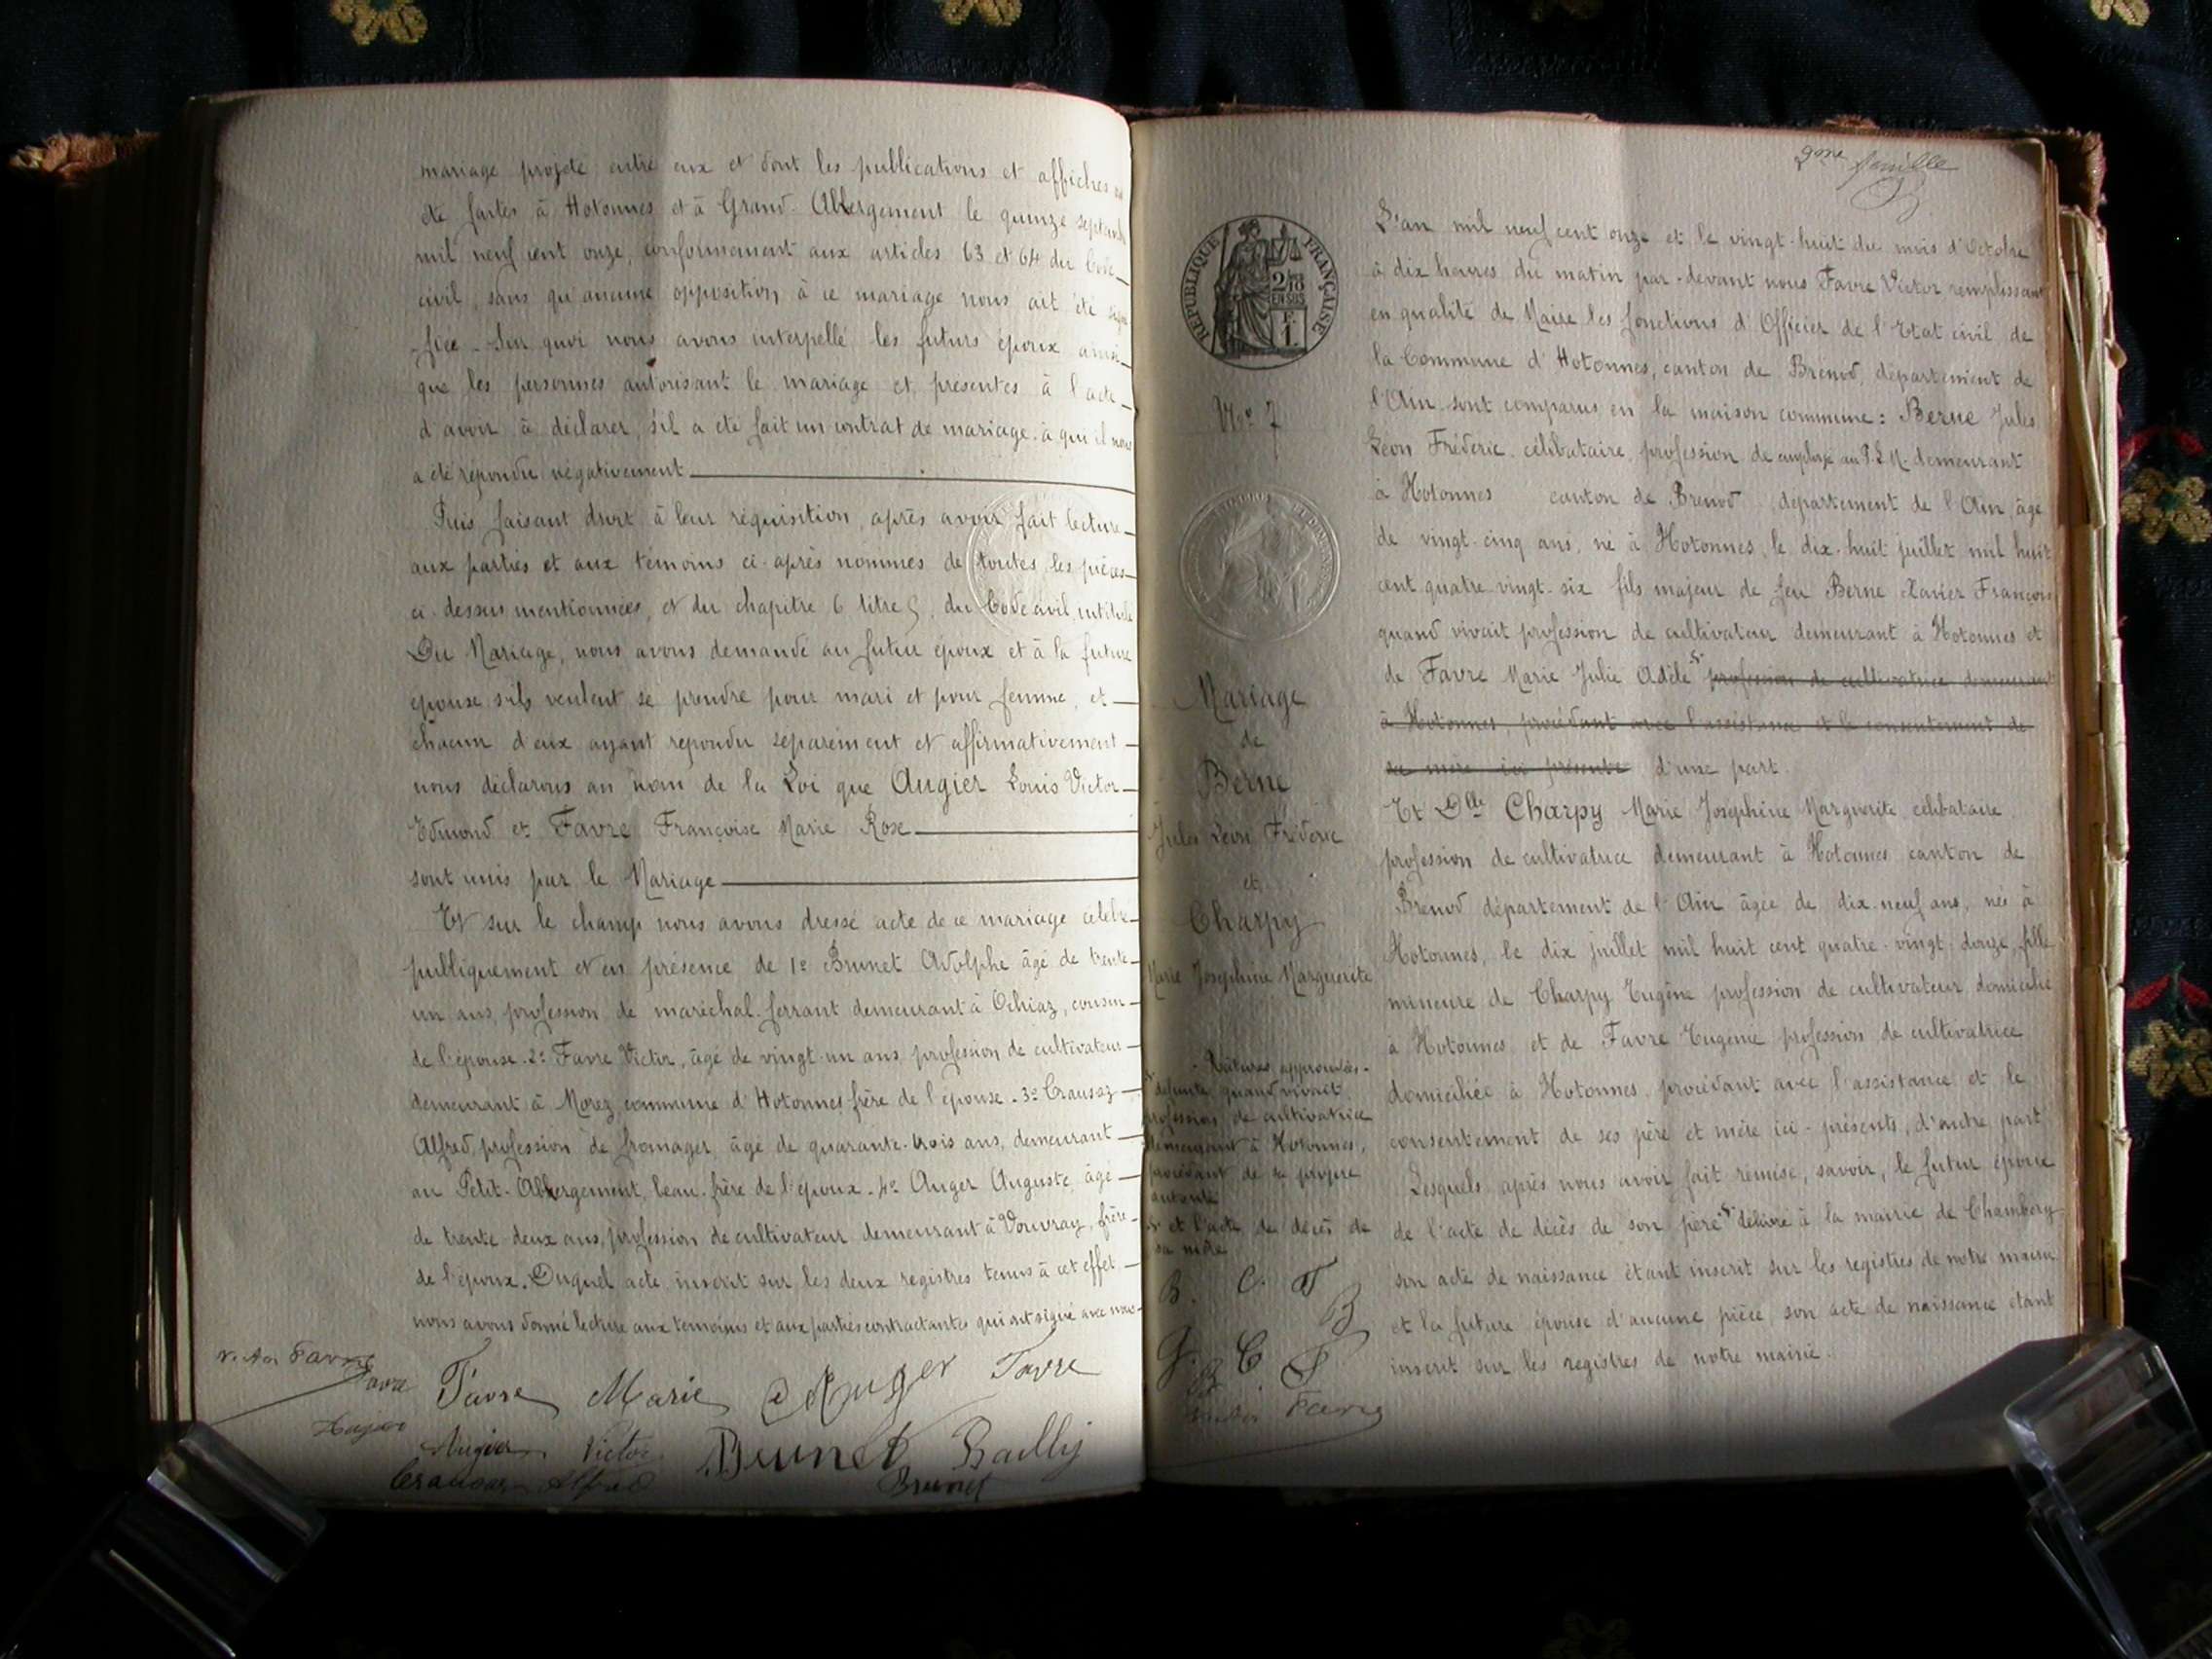 mariage projeté entre eux et dont les publications et affiches ont
été faites à Hotonnes et à Grand-Abergement le quinze septembre
mil neuf cent onze, conformément aux articles 63 et 64 du Code
civil, sans qu'aucune opposition à ce mariage nous ait été signi
-fiée - Sur quoi nous avons interpellé les futurs époux ainsi
que les personnes autorisant le mariage et présentes à l'acte
d'avoir à déclarer s'il a été fait un contrat de mariage. à qui il nous
a été répondu négativement
Puis faisant droit à leur réquisition, après avoir fait lecture
aux parties et aux témoins ci-après nommés de toutes les pièces
ci-dessus mentionnées, et du chapitre 6 titre 5, du Code civil, intitulé
Du Mariage, nous avons demandé au futur époux et à la future
épouse s'ils veulent se prendre pour mari et pour femme, et
chacun d'eux ayant repondu séparément et affirmativement
nous déclarons au nom de la Loi que Augier Louis Victor
Edmond et Favre Françoise Marie Rose
sont unis par le Mariage
Et sur le champ nous avons dressé acte de ce mariage célébré
publiquement et en présence de 1º Brunet Adolphe âgé de trente
un ans, profession de maréchal-ferrant demeurant à Ochiaz, cousin
de l'épouse. 2º Favre Victor, âgé de vingt-un ans profession de cultivateur
demeurant à Morez commune d'Hotonnes frère de l'épouse. 3º Crausaz
Alfred, profession de fromager, âgé de quarante-trois ans, demeurant
au Petit-Abbergement, beau-frère de l'époux. 4º Auger Auguste, âgé
de trente-deux ans, profession de cultivateur demeurant à Vouvray, frère
de l'époux. Duquel acte inscrit sur les deux registres tenus à cet effet
nous avons donné lecture aux témoins et aux parties contractantes qui ont signé avec nous
Favre
Favre
Favre Marie Auger Favre
Augier Victor Brunet Bailly
Crausaz Alfred Brunet
9me feuille
RÉPUBLIQUE FRANÇAISE
2/10
EN SUS
1F
L'an mil neuf cent onze et le vingt-huit du mois d'Octobre
à dix heures du matin par-devant nous Favre Victor remplissant
en qualité de Maire les fonctions d'Officier de l'Etat civil de
la Commune d'Hotonnes, canton de Brenod, département de
l'Ain sont comparus en la maison commune: Berne Jules
Léon Fréderic célibataire, profession de employé au P.L.M. demeurant
à Hotonnes canton de Brenod département de l'Ain, âgé
de vingt-cinq ans, né à Hotonnes, le dix-huit juillet mil huit
cent quatre-vingt-six fils majeur de feu Berne Xavier François
quand vivait profession de cultivateur demeurant à Hotonnes et
de Favre Marie Julie Adèle profession de cultivatrice demeurant
à Hotonnes, procédant avec l'assistance et le consentement de
sa mère ici présente d'une part.
Et Dlle Charpy Marie Joséphine Marguerite célibataire
profession de cultivatrice demeurant à Hotonnes canton de
Brenod département de l'Ain âgée de dix-neuf ans, née à
Hotonnes, le dix juillet mil huit cent quatre-vingt-douze, fille
mineure de Charpy Eugène profession de cultivateur, domicilié
à Hotonnes et de Favre Eugénie profession de cultivatrice
domiciliée à Hotonnes, procédant avec l'assistance et le
consentement de ses père et mère ici-présents, d'autre part
Lesquels après nous avoir fait remise, savoir, le futur époux
de l'acte de décès de son père délivré à la mairie de Chambéry
son acte de naissance étant inscrit sur les registres de notre mairie
et la future épouse d'aucune pièce, son acte de naissance étant
inscrit sur les registres de notre mairie.
No 7
Mariage
de
Berne
Jules Léon Fréderic
et
Charpy
Marie Joséphine Marguerite
- Ratures approuvées -
défunte quand vivait
profession de cultivatrice
demeurant à Hotonnes,
procédant de sa propre
autorité
et l'acte de décès de
sa mère
B. C. F
B
C F
B
Favre